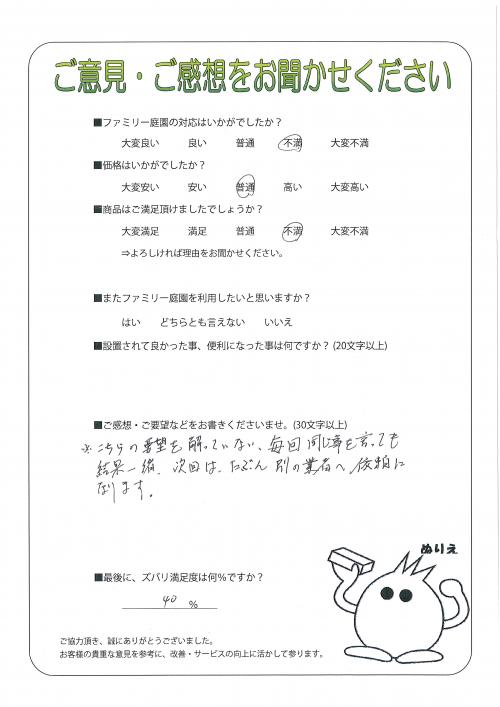 ご意見・ご感想をお聞かせください
■ファミリー庭園の対応はいかがでしたか？
大変良い 良い 普通 不満 大変不満
■価格はいかがでしたか？
大変安い 安い 普通 高い 大変高い
■商品はご満足頂けましたでしょうか？
大変満足 満足 普通 不満 大変不満
⇒よろしければ理由をお聞かせください。
■またファミリー庭園を利用したいと思いますか？
はい どちらとも言えない いいえ
■設置されて良かった事、便利になった事は何ですか？(20文字以上)
■ご感想・ご要望などをお書きくださいませ。(30文字以上)
※こちらの要望を解っていない、毎回同じ事を言っても
結果一緒、次回は、たぶん別の業者へ依頼に
なります。
ぬりえ
■最後に、ズバリ満足度は何％ですか？
40 %
ご協力頂き、誠にありがとうございました。
お客様の貴重な意見を参考に、改善・サービスの向上に活かして参ります。